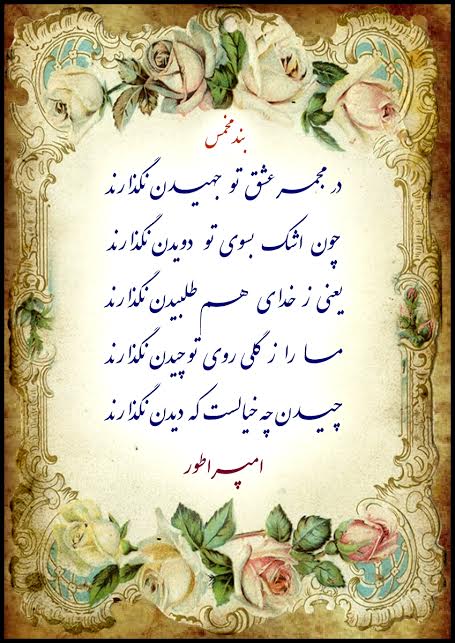 بند مخمس
در مجمر عشق تو جهیدن نگذارند
چون اشک بسوی تو دویدن نگذارند
یعنی ز خدای هم طلبیدن نگذارند
ما را ز گلی روی تو چیدن نگذارند
چیدن چه خیالست که دیدن نگذارند
امپراطور